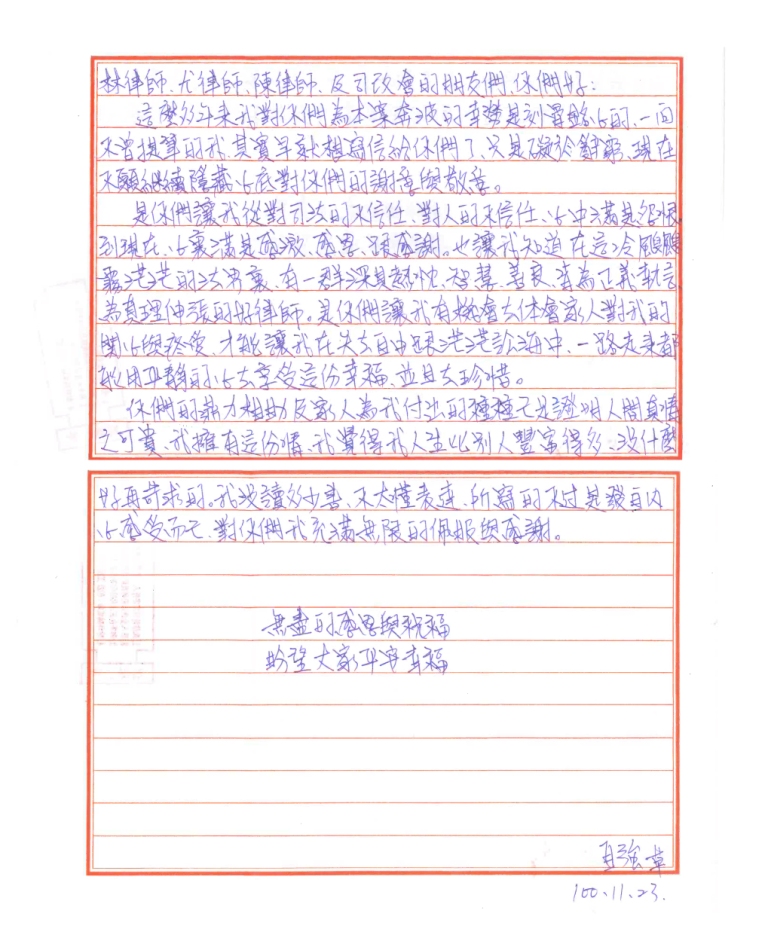 林律師、尤律師、陳律師、及司改會的朋友們、你們好:
這麼多年來我對你們為本案奔波的辛勞是刻骨銘心的、一向
不曾提筆的我、其實早就想寫信給你們了、只是礙於銅窮、現在
不願繼續隱藏心底對你們的謝意與敬意。
是你們讓我從對司法的不信任、對人的不信任、心中滿是怨恨
到現在、心裏滿是感激、感恩、跟感謝。也讓我知道在這冷颼颼
霧茫茫的法界裏、有一群深具熱忱、智慧、善良、肯為正義執言
為真理伸張的好律師。是你們讓我有機會去体會家人對我的
關心與終愛、才能讓我在失去自由跟茫茫訟海中、一路走來都
能用平靜的心去享受這份幸福、並且去珍惜。
你們的鼎力相助及家人為我付出的種種已足證明人間真情
之可貴、我擁有這份情、我覺得我人生比別人豐富得多、沒什麼
好再苛求的。我沒讀多少書、不太懂表達、所寫的不过是發自內
心感受而已、對你們我充滿無限的佩服與感謝。
無盡的感恩與祝福
盼望大家平安幸福
自強 草
100.11.23.